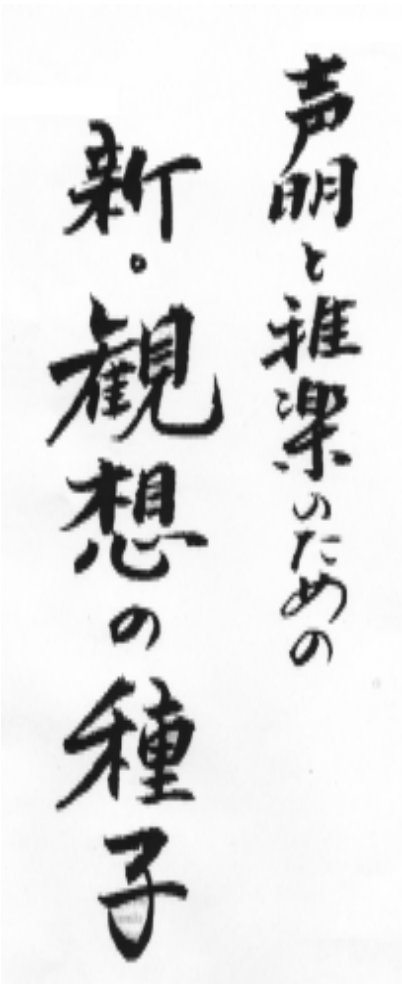 声明と雅楽のための
新。観想の種子